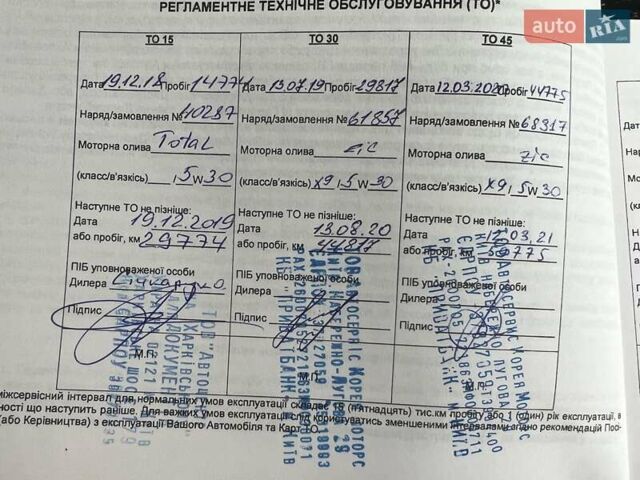 РЕГЛАМЕНТНЕ ТЕХНІЧНЕ ОБСЛУГОВУВАННЯ (ТО)*
auto RIA.com
ТО 15
Дата 19.12.18 Пробіг 14774
Наряд/замовлення № 40287
Моторна олива Total
(класс/в'язкість) , 5 W 30
Наступне ТО не пізніше:
Дата 19.12.2019
або пробіг, км 29774
ПІБ уповноваженої особи
Дилера
Підпис
М.П.
ТО 30
Дата 13.07.19 Пробіг 29817
Наряд/замовлення № 61857
Моторна олива Zic
(класс/в'язкість) X9, 5 W 30
Наступне ТО не пізніше:
Дата 13.08.20
або пробіг, км 44817
ПІБ уповноваженої особи
Дилера
Підпис
ТО 45
Дата 12.03.2020 Пробіг 44775
Наряд/замовлення № 68317
Моторна олива Zic
(класс/в'язкість) X9, 5 W 30
Наступне ТО не пізніше:
Дата 12.03.21
або пробіг, км 59775
ПІБ уповноваженої особи
Дилера
Підпис
М.П.
міжсервісний інтервал для нормальних умов експлуатації складає 15 (пятнадцять) тис.км пробігу або 1 (один) рік експлуатації, в
ності що наступить раніше. Для важких умов експлуатації слід користуватись зменшеними інтервалами згідно рекомендацій Пос-
(або Керівництва) з експлуатації Вашого Автомобіля та Карт ТО.